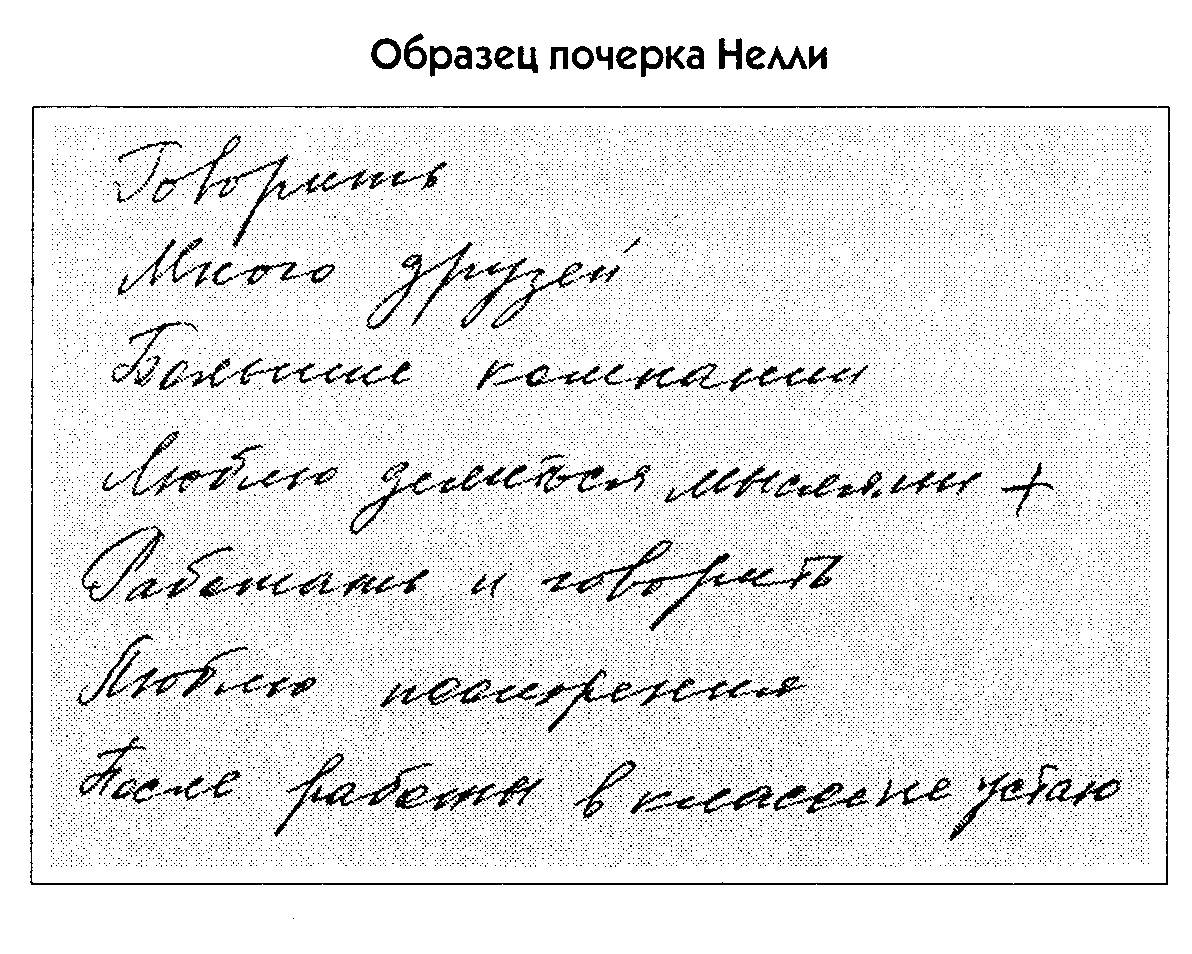 Образец почерка Нелли
Говорить
Много друзей
Большие компании
Люблю делиться мыслями +
Работать и говорить
Люблю поощрения
После работы в классе не устаю